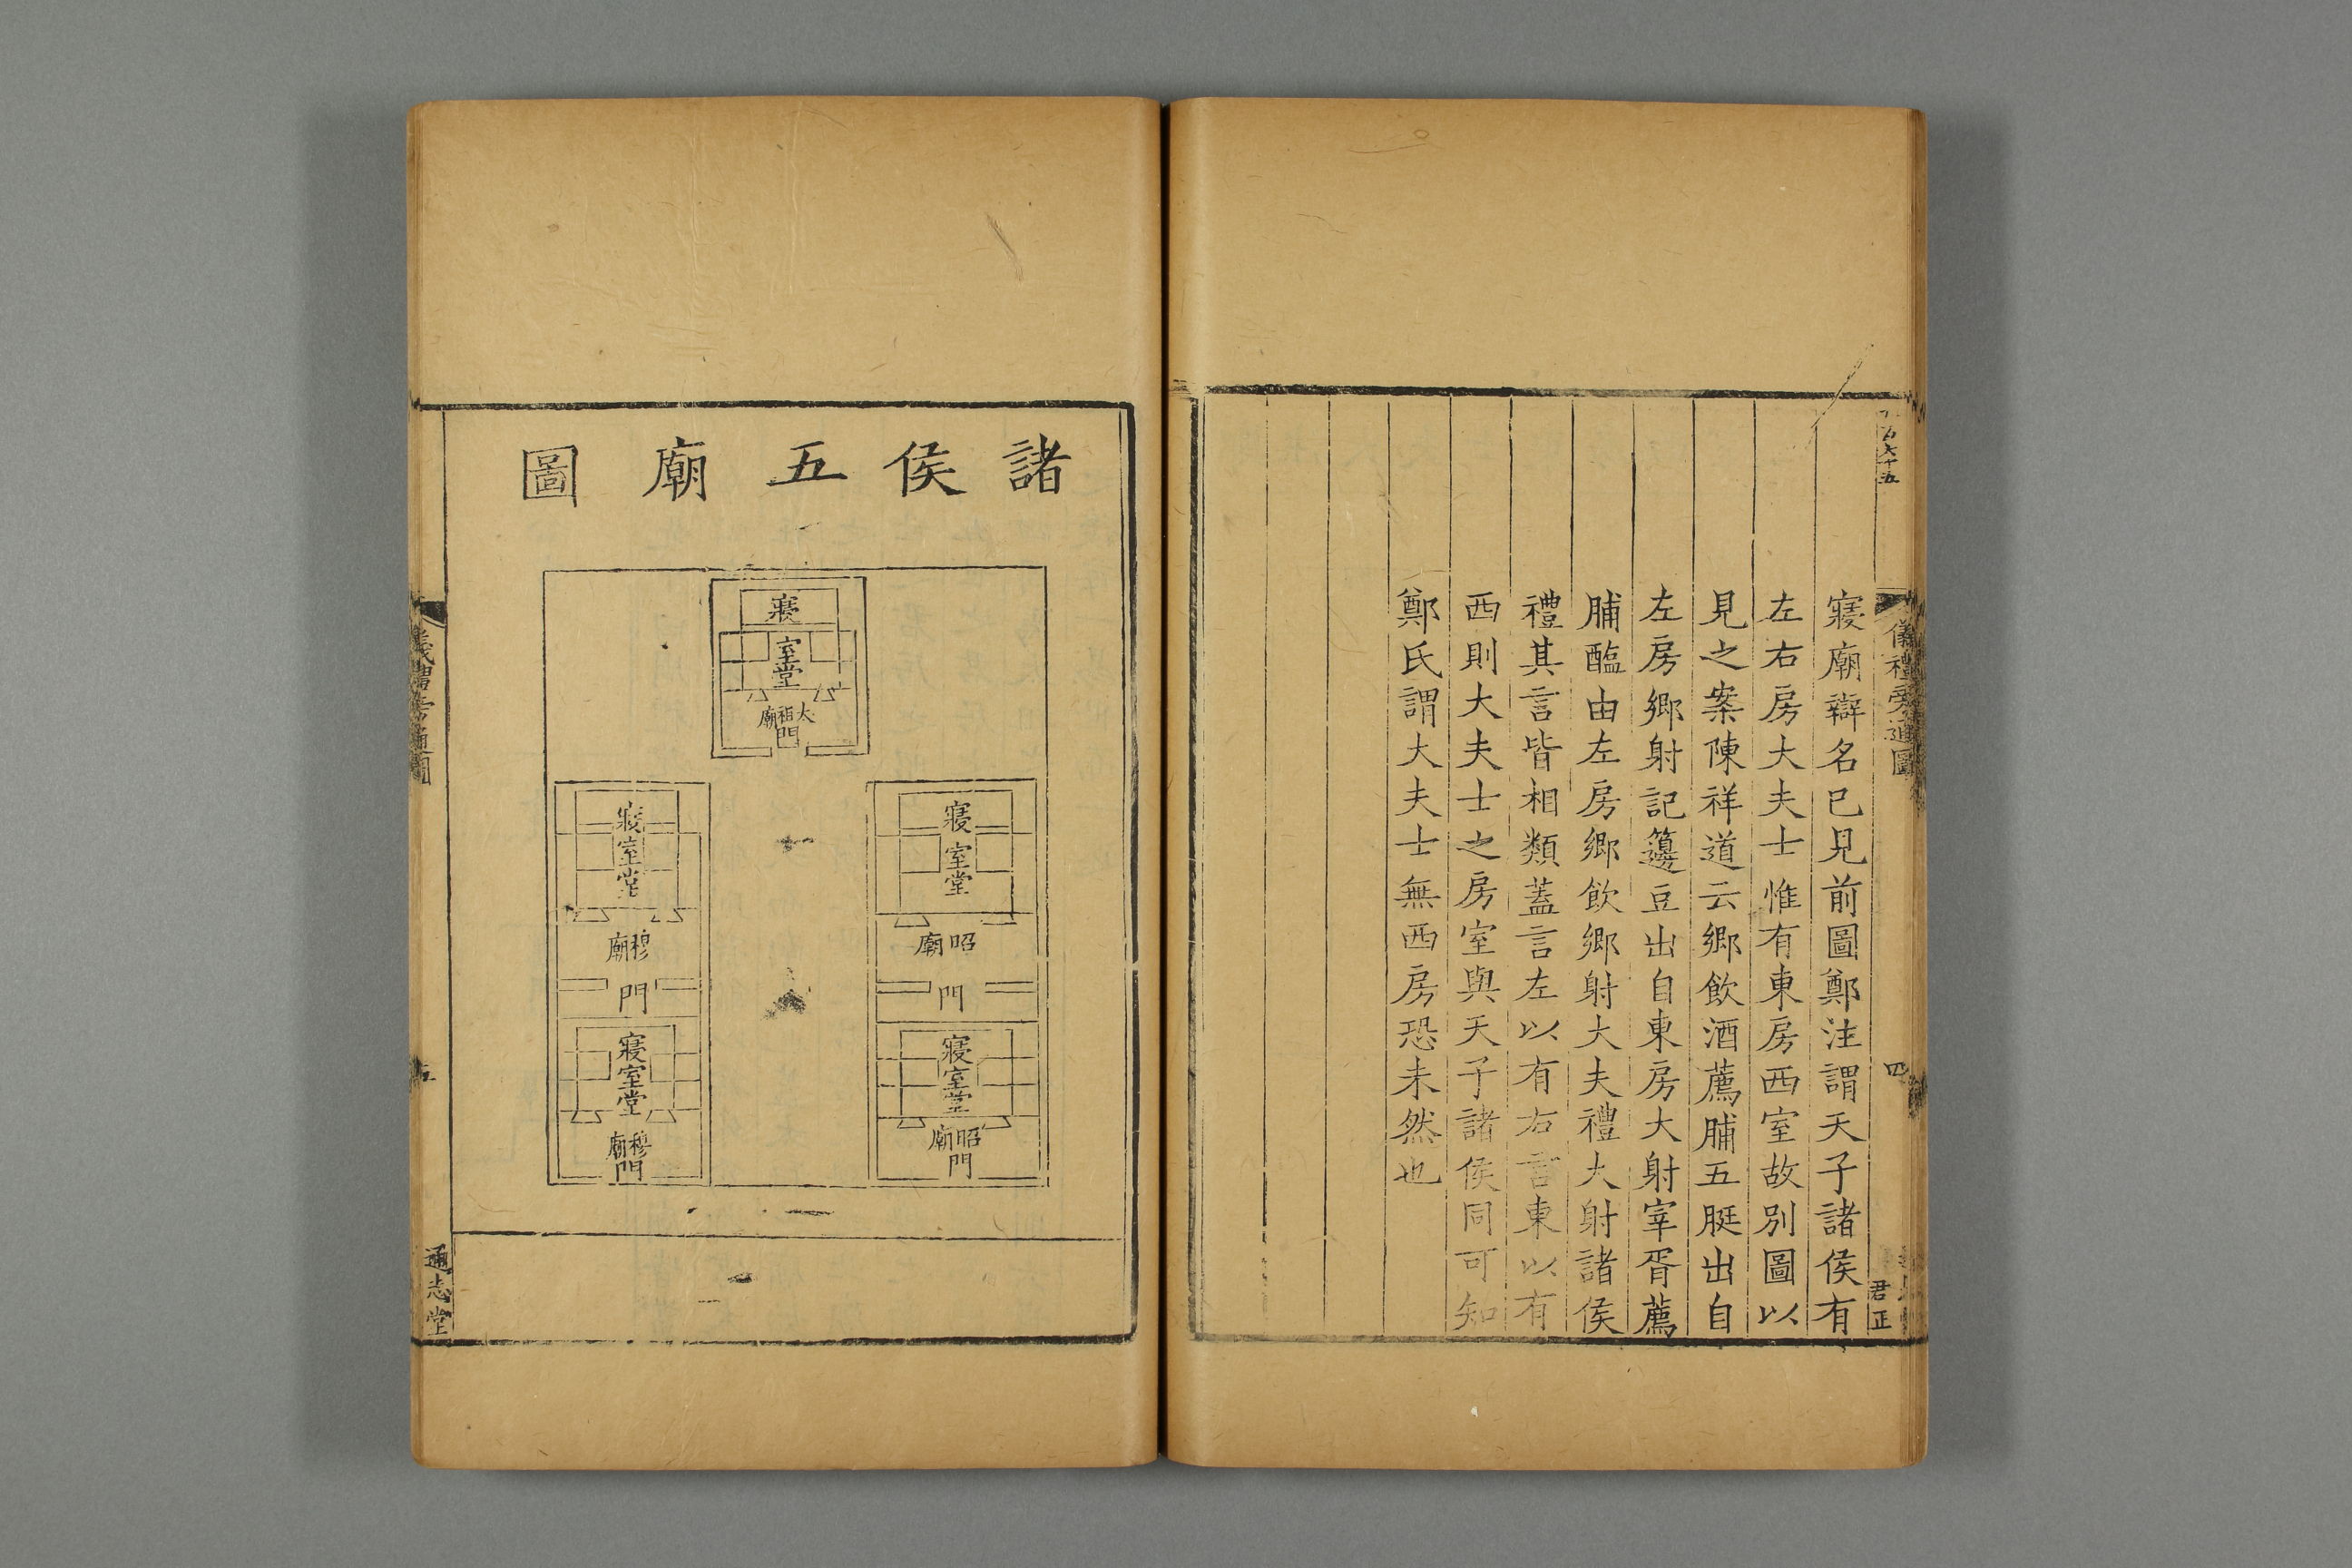 儀禮旁通圖
四
君正
寢廟辯名已見前圖鄭注謂天子諸侯有
左右房大夫士惟有東房西室故別圖以
見之案陳祥道云鄉飲酒薦脯五脡出自
左房鄉射記籩豆出自東房大射宰胥薦
脯醢由左房鄉飲鄉射大夫禮大射諸侯
禮其言皆相類蓋言左以有右言東以有
西則大夫士之房室與天子諸侯同可知
鄭氏謂大夫士無西房恐未然也
諸侯五廟圖
寢
室
堂
太祖廟
門
寢
室
堂
昭廟
門
寢
室
堂
昭廟
門
寢
室
堂
穆廟
門
寢
室
堂
穆廟
門
儀禮旁通圖
五
通志堂